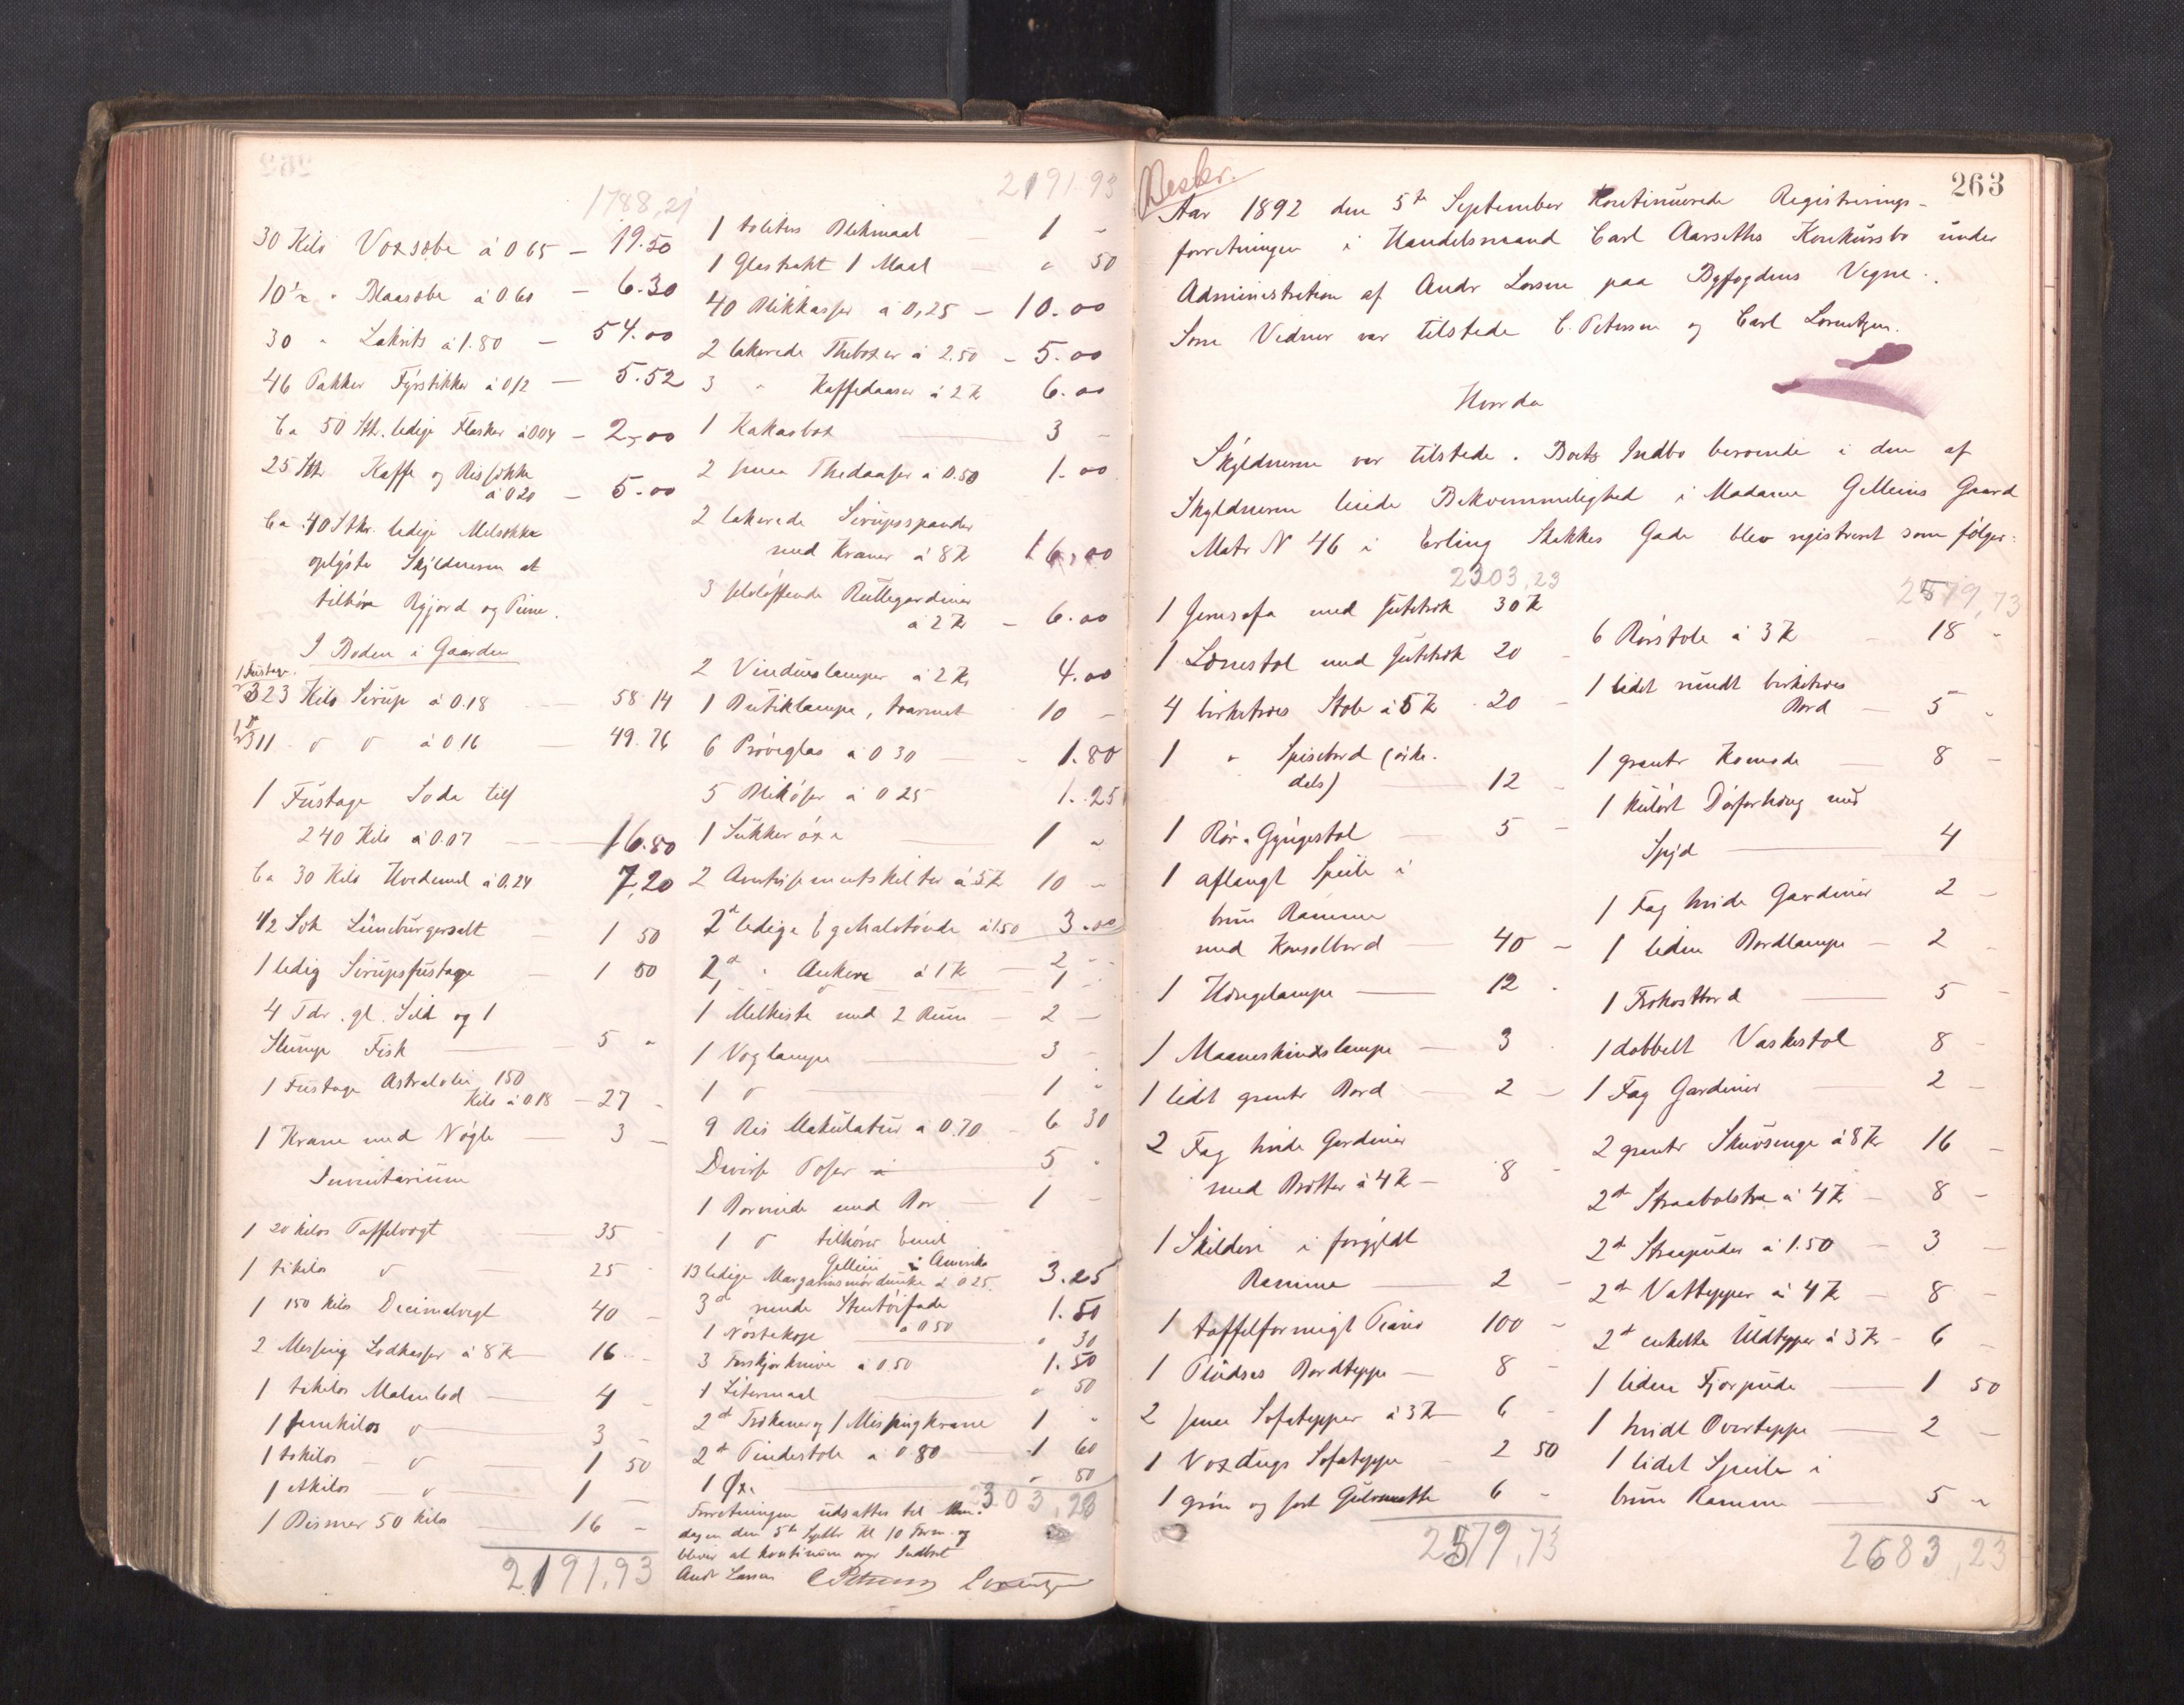 1788,21
30 Kilo Voxsæbe à 0 65 — 19.50
10½ " Blaasæbe à 0.60 — 6.30
30 " Lakrits à 1.80 — 54.00
46 Pakker Fyrstikker à 0,12 — 5.52
Ca 50 Stk. ledige Flasker à 0.04 — 2,00
25 Stk Kaffe og Rissække
à 0 20 — 5.00
Ca 40 Stkr. ledige Melsække
oplyste Skyldneren at
tilhøre
I Boden i Gaarden
1 Fustage
323 Kilo Sirup à 0.18 — 58 14
311 " " à 0 16 — 49.76
1 Fustage Soda
240 Kilo à 0.07 — 16.80
Ca 30 Kilo Hvedemel à 0.24 7,20
1/2 Sæk Lüneburgersalt — 1 50
1 ledig Sirupsfustage — 1 50
4 Tdr. gl. Sild og 1
Slump Fisk — 5 "
1 Fustage Astralolie 150
Kilo à 0 18 — 27 -
1 Krane med Nøgle — 3 -
Inventarium
1 20 kilos Taffelvægt — 35 -
1 tikilos d — 25 -
1 150 kilos Decimalvægt 40 -
2 Messing Lodkasser à 8 Kr 16 -
1 tikilos Malmlod — 4 -
1 femkilos d — 3 -
1 tokilos — d — 1 50
1 etkilos — d — 1 -
1 Bismer 50 kilo — 16 -
2191,93
2191.93
1 toliters Blikmaal 1 -
1 Glastrakt 1 Maal " 50
40 Blikkasser à 0,25 — 10.00
2 lakerede Thebøxer à 2.50 — 5.00
3 " Kaffedaaser à 2 Kr 6.00
1 Kakaobox — 3 -
2 smaa Thedaaser à 0.50 1.00
2 lakerede Sirupsspander
med Kraner à 8 Kr 16,00
3 selvløftende Rullegardiner
à 2 Kr — 6.00
2 Vindueslamper à 2 Kr 4.00
1 Butiklampe, 10 -
6 Prøveglas à 0 30 — 1.80
5 Blikøser à 0 25 1.25
1 Sukkerøxe — 1 "
2 Avertissementskilter à 5 Kr 10 -
2 ledige Egemaltønde à 1.50 3.00
2 " Ankere à 1 Kr — 2 -
1 d — 1 -
1 Melkiste med 2 Rum — 2 -
1 Væglampe — 3 -
1 d — 1 "
9 Ris Makulatur à 0.70 — 6 30
Diverse Poser — 5 -
1 Borvinde med Bor — 1 -
1 d tilhører Emil
Gellein i Amerika
13 ledige Margarinsmørdunke à 0 25. 3.25
3 runde Stentøifade
à 0 50 1.50
1 Nøstekop " 30
3 Forskjærknive à 0.50 1.50
1 Litermaal " 50
2 Trækraner og 1 Messingkrane 1 "
2 Pindestole à 0.80 — 1 60
1 Øx. — " 50
2303,23
Forretningen udsattes til
dagen den 5te Septbr Kl 10 Form. og
bliver at kontinuere over Indboet
Andr Larsen C Petersen Lorentzen
263
Beskr.
Aar 1892 den 5te September kontinuerede Registrerings-
forretningen i Handelsmand Carl Aarseths Konkursbo under
Administration af Andr Larsen paa Byfogdens Vegne.
Som Vidner var tilstede C. Petersen og Carl Lorentzen.
Hvorda
Skyldneren var tilstede. Boets Indbo beroende i den af
Skyldneren leiede Bekvemmelighed i Madame Gelleins Gaard
Matr N 46 i Erling Skakkes Gade blev registreret som følger:
2303,23
1 Jernsofa med Jutetræk 30 Kr
1 Lænestol med Jutetræk 20 -
4 birketræs Stole à 5 Kr 20 -
1 " Spisebord (
dels) — 12 -
1 Rør-Gyngestol — 5 -
1 aflangt Speile i
brun Ramme
med Konsolbord — 40 -
1 Hængelampe — 12 -
1 Maaneskinslampe — 3 -
1 lidt grantr Bord — 2 -
2 Fag hvide Gardiner
med Bretter à 4 Kr — 8 -
1 Skilderi i forgyldt
Ramme — 2 -
1 taffelformigt Piano 100 -
1 Pludses Bordteppe — 8 -
2 smaa Sofatepper à 3 Kr — 6 -
1 Voxdugs Sofateppe — 2 50
1 grøn og sort Gulvmatte 6 -
2579,73
2579,73
6 Rørstole à 3 Kr — 18 -
1 lidet rundt birketræs
Bord — 5 -
1 grantr Komode — 8 -
1 kulørt Dørforhæng med
Spyd — 4
1 Fag hvide Gardiner 2 -
1 liden Bordlampe — 2 -
1 Frokostbord — 5 -
1 dobbelt Vaskestol 8 -
1 Fag Gardiner — 2 -
2 grantr Skuvsenge à 8 Kr 16 -
2 Straabolstre à 4 Kr — 8 -
2 Straapuder à 1.50 — 3 -
2 Vattepper à 4 Kr — 8 -
2 enkelte Uldtepper à 3 Kr — 6 -
1 liden Fjærpude — 1 50
1 hvidt Overteppe — 2 -
1 lidet Speile i
brun Ramme — 5 "
2683,23